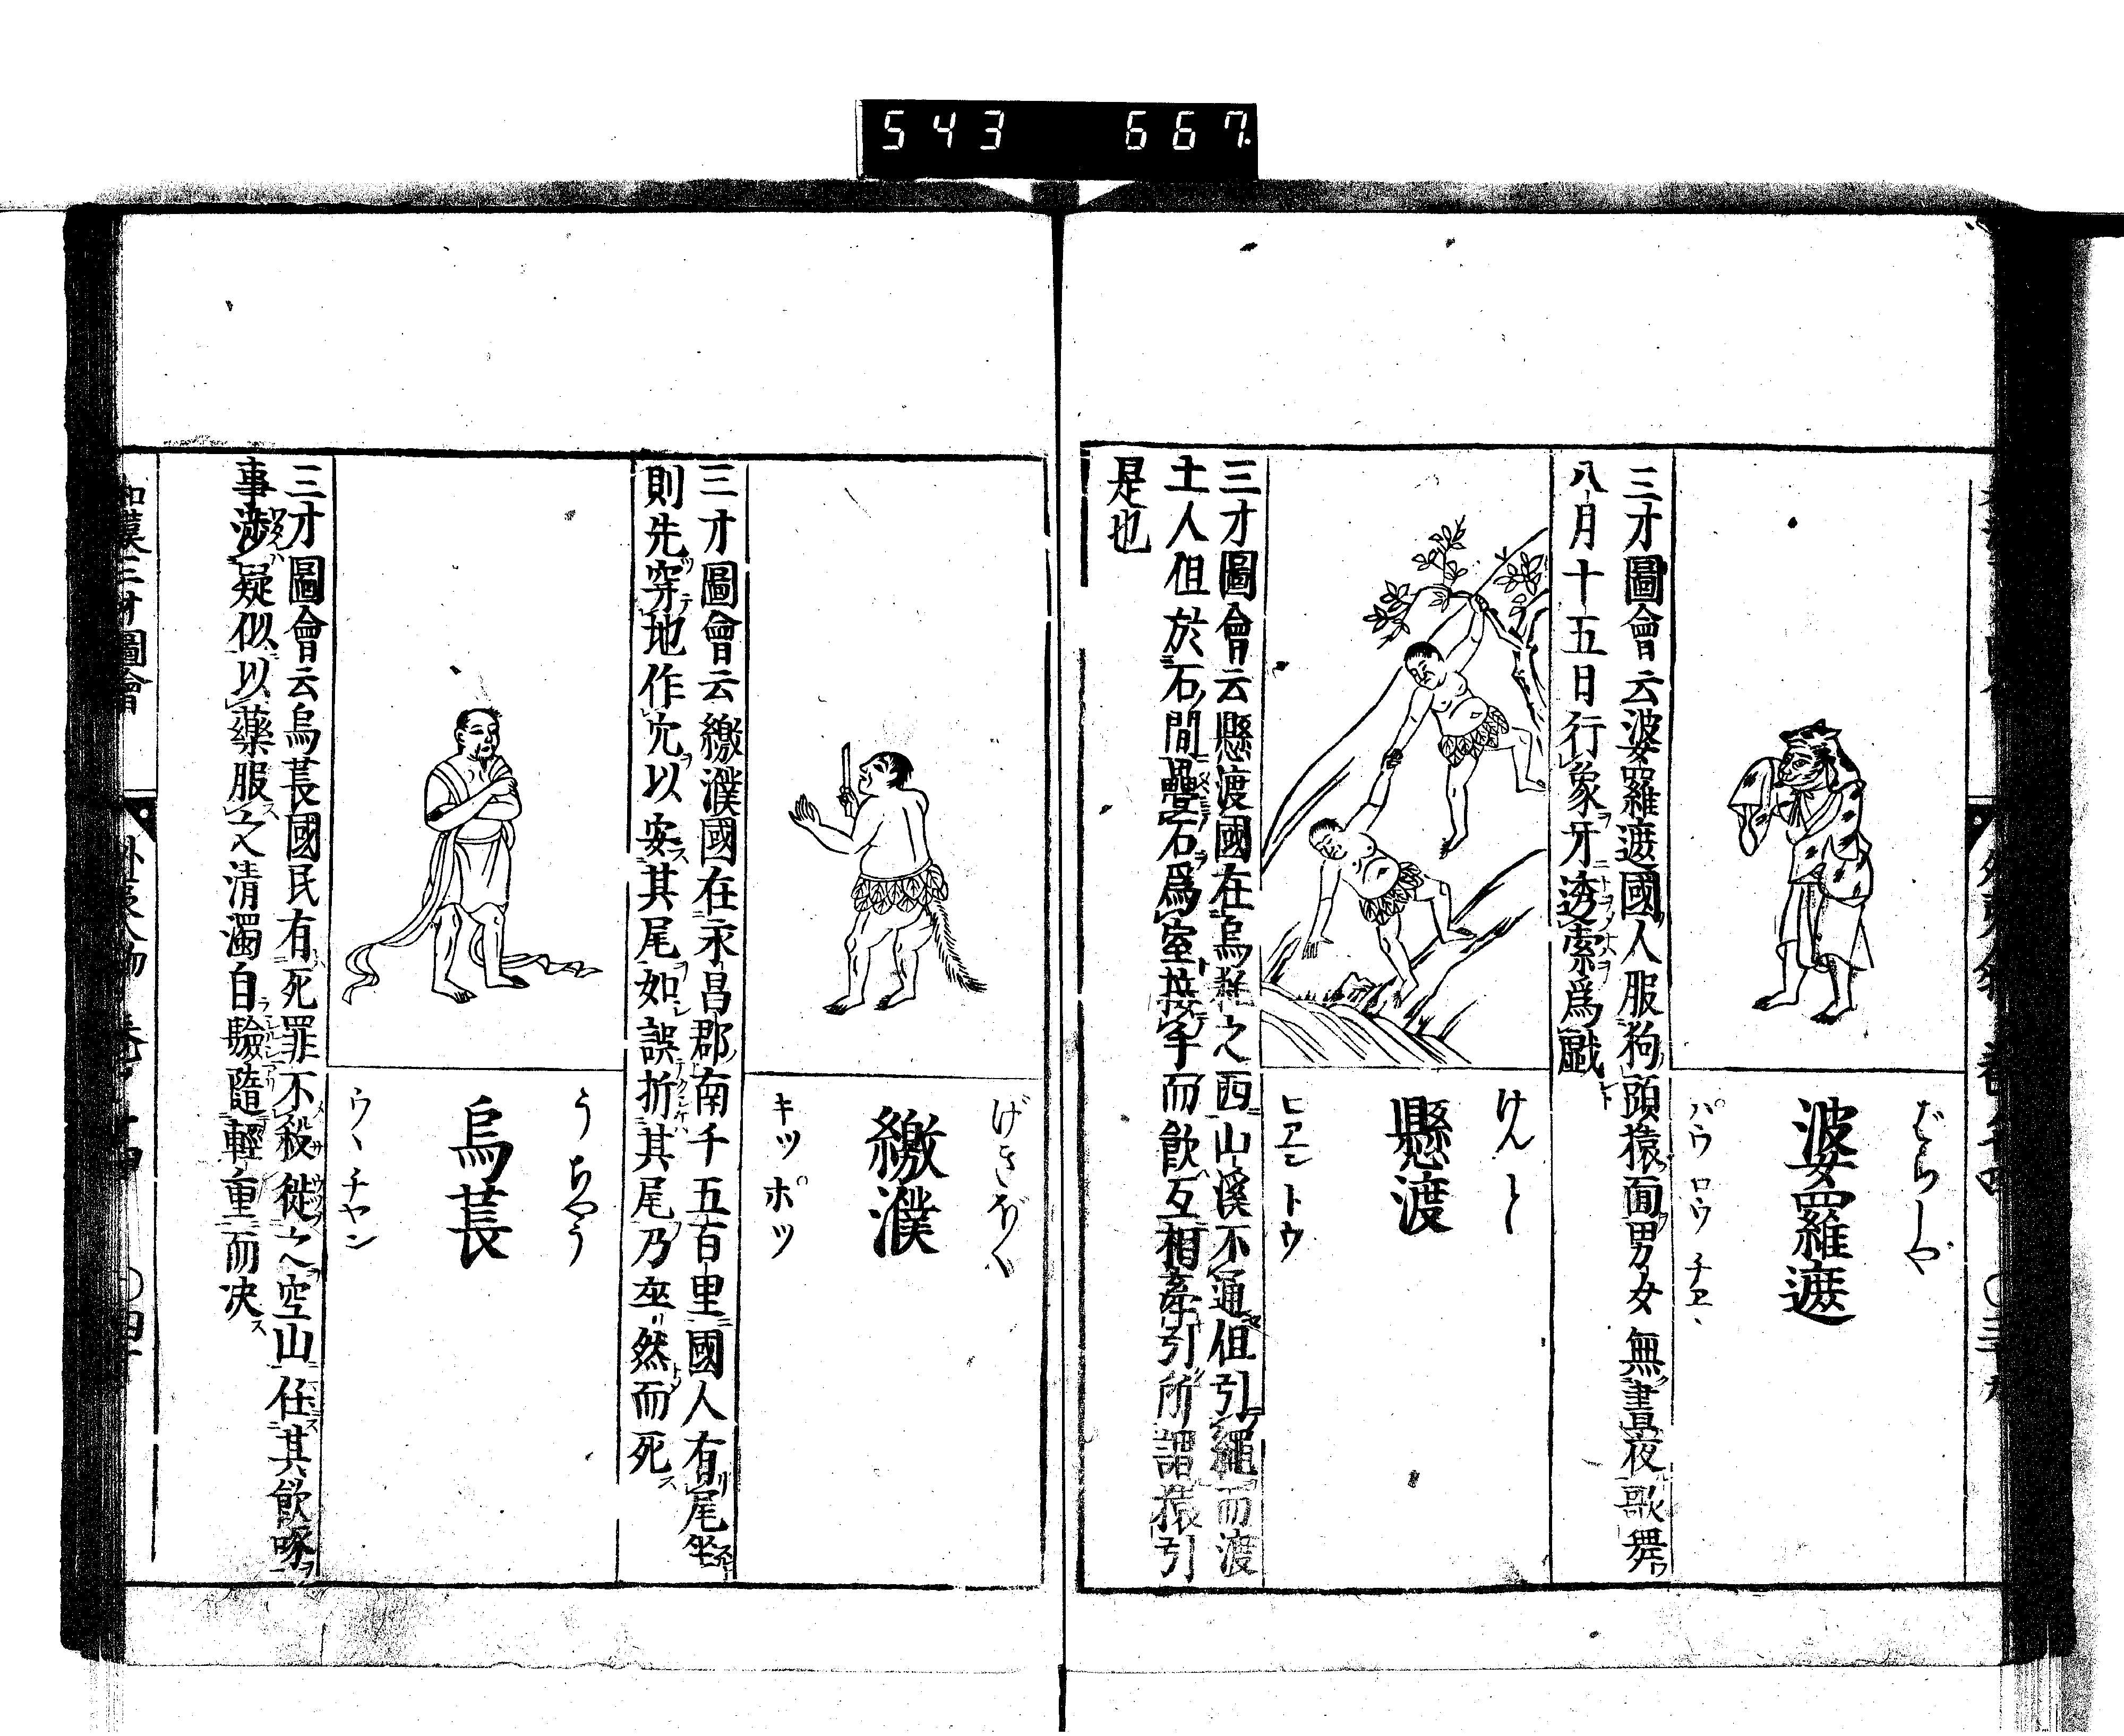 543 667
婆羅遮
ばらしや
パウ ロウ チヱヽ
三才圖會云婆羅遮國人服狗頭猿面男女無晝夜歌舞
八月十五日行象牙透索爲戲
懸渡
けんと
ヒヱン トウ
三才圖會云懸渡國在烏耗之西山溪不通但引繩而渡
土人佃於石間壘石爲室接手而飲互相牽引所謂猿引
是也
繳濮
げきぼく
キツ ポツ
三才圖會云繳濮國在永昌郡南千五百里國人有尾坐
則先穿地作穴以安其尾如誤折其尾乃卒然而死
烏萇
うちやう
ウヽ チヤン
三才圖會云烏萇國民有死罪不殺徙之空山任其飲啄
事渉疑似以藥服之清濁自驗隨輕重而決
和漢三才圖會